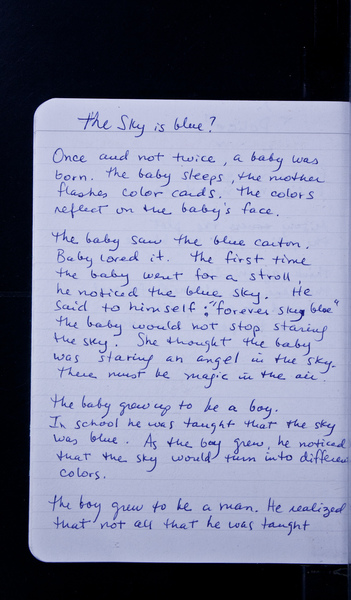 The Sky is blue?
Once and not twice, a baby was
born. The baby sleeps, the mother
flashes color cards. The colors
reflect on the baby's face.
The baby saw the blue carton.
Baby loved it. The first time
the baby went for a stroll,
he noticed the blue sky. He
said to himself; "forever sky blue"
the baby would not stop staring
the sky. She thought the baby
was staring an angel in the sky.
There must be magic in the air.
The baby grew up to be a boy.
In school he was taught that the sky
was blue. As the boy grew, he noticed
that the sky would turn into different
colors.
The boy grew to be a man. He realized
that not all that he was taught